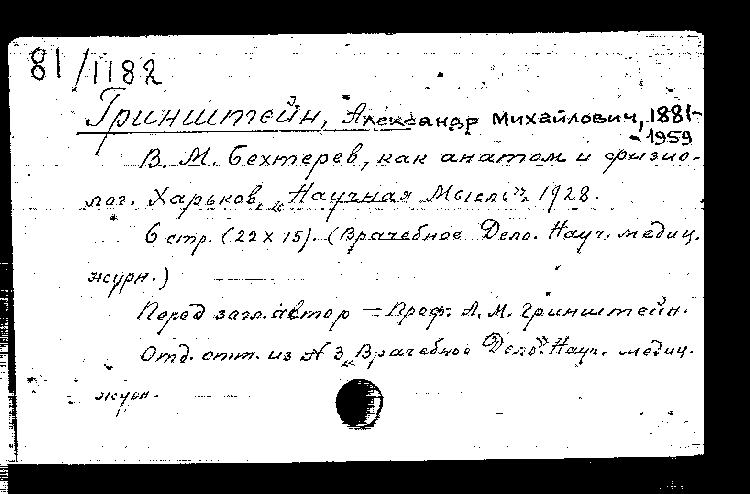 81/1182
Гринштейн, Александр Михайлович, 1881-
- 1959
В. М. Бехтерев, как анатом и физио-
лог. Харьков, „Научная Мысль", 1928.
6 стр. (22 x 15). (Врачебное Дело. Науч. медиц.
журн.)
Перед загл. автор — Проф. А. М. Гринштейн.
Отд. отт. из № 3 „Врачебное Дело". Науч. медиц.
журн.